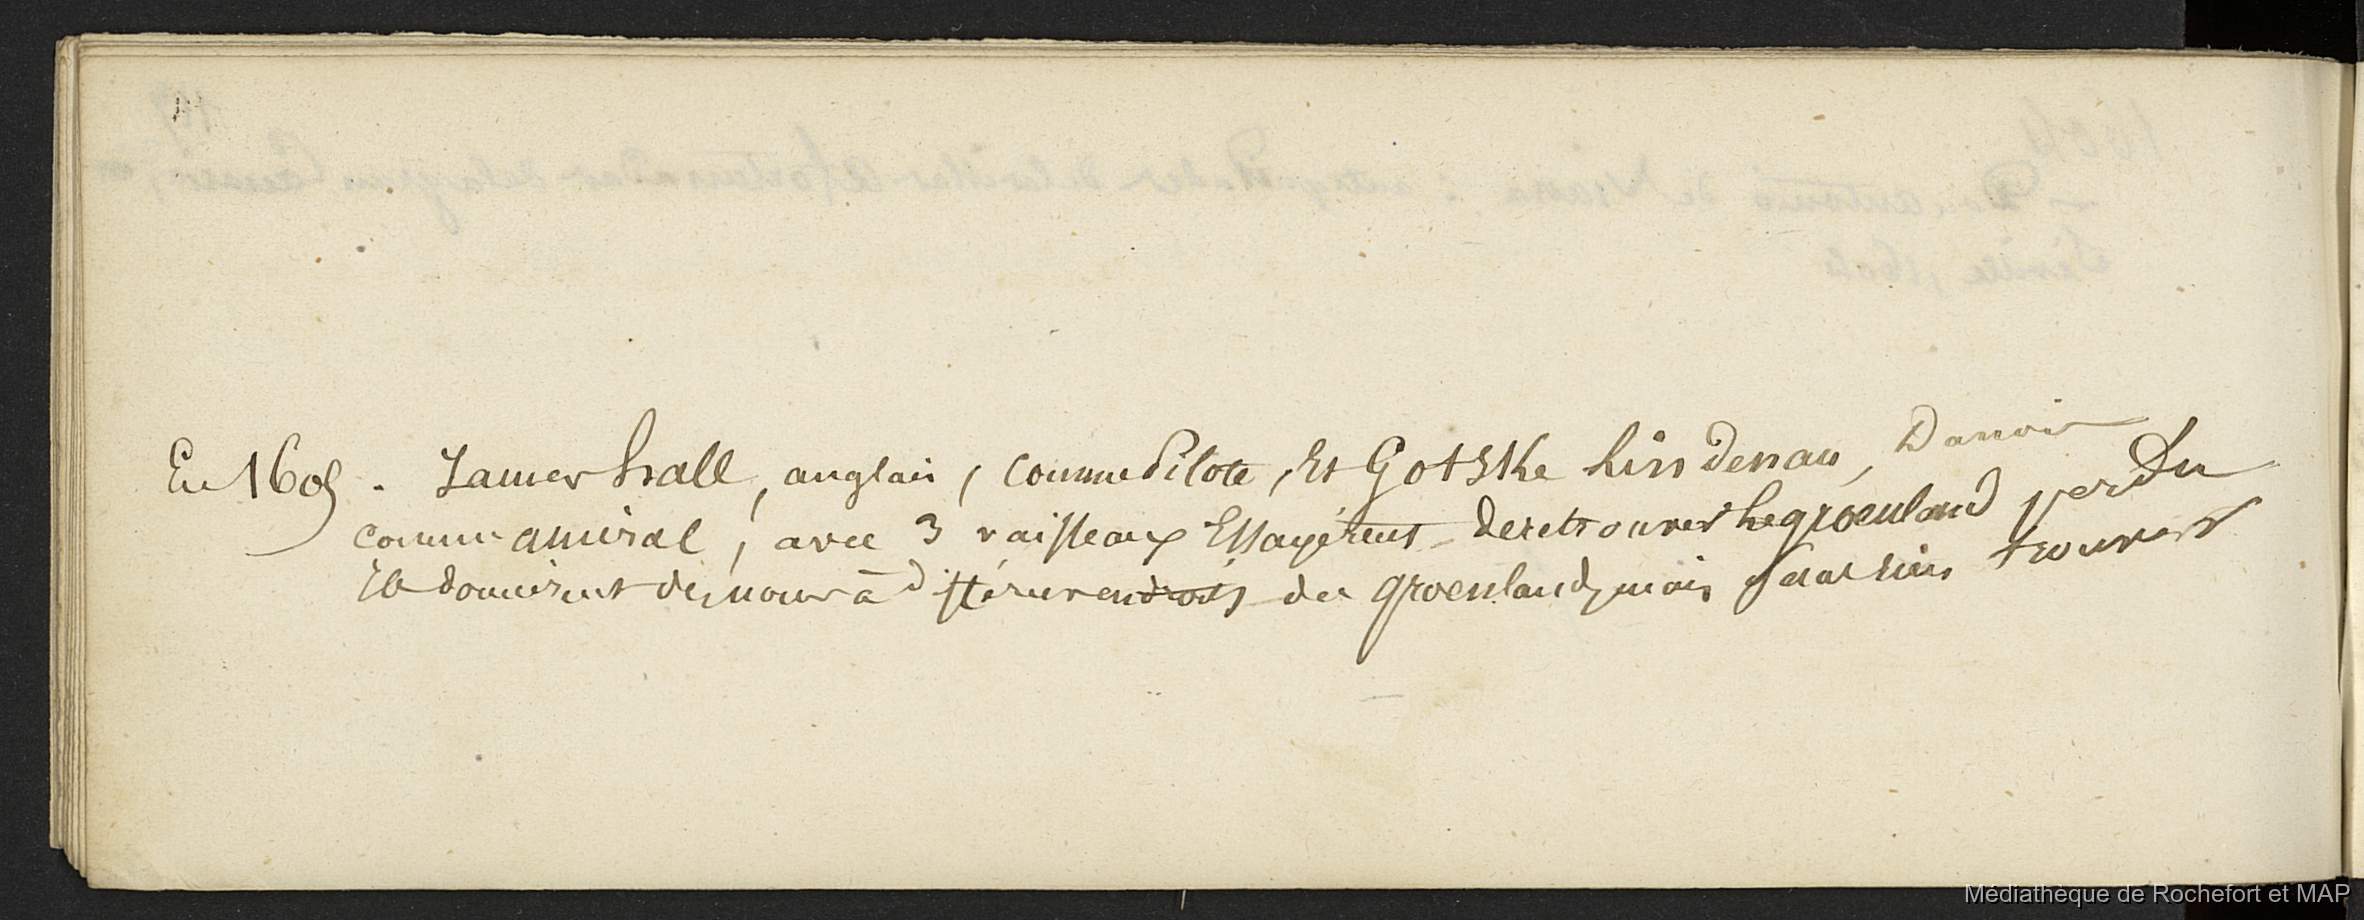 En 1605. James hall, anglais, comme Pilote, Et Gotske Lindenau, Danois
comme amiral, avec 3 vaisseaux Essayèrent de retrouver Le groenland perdu
Ils donnèrent des noms à différens endroits du groenland, mais sans rien trouver
Médiathèque de Rochefort et MAP